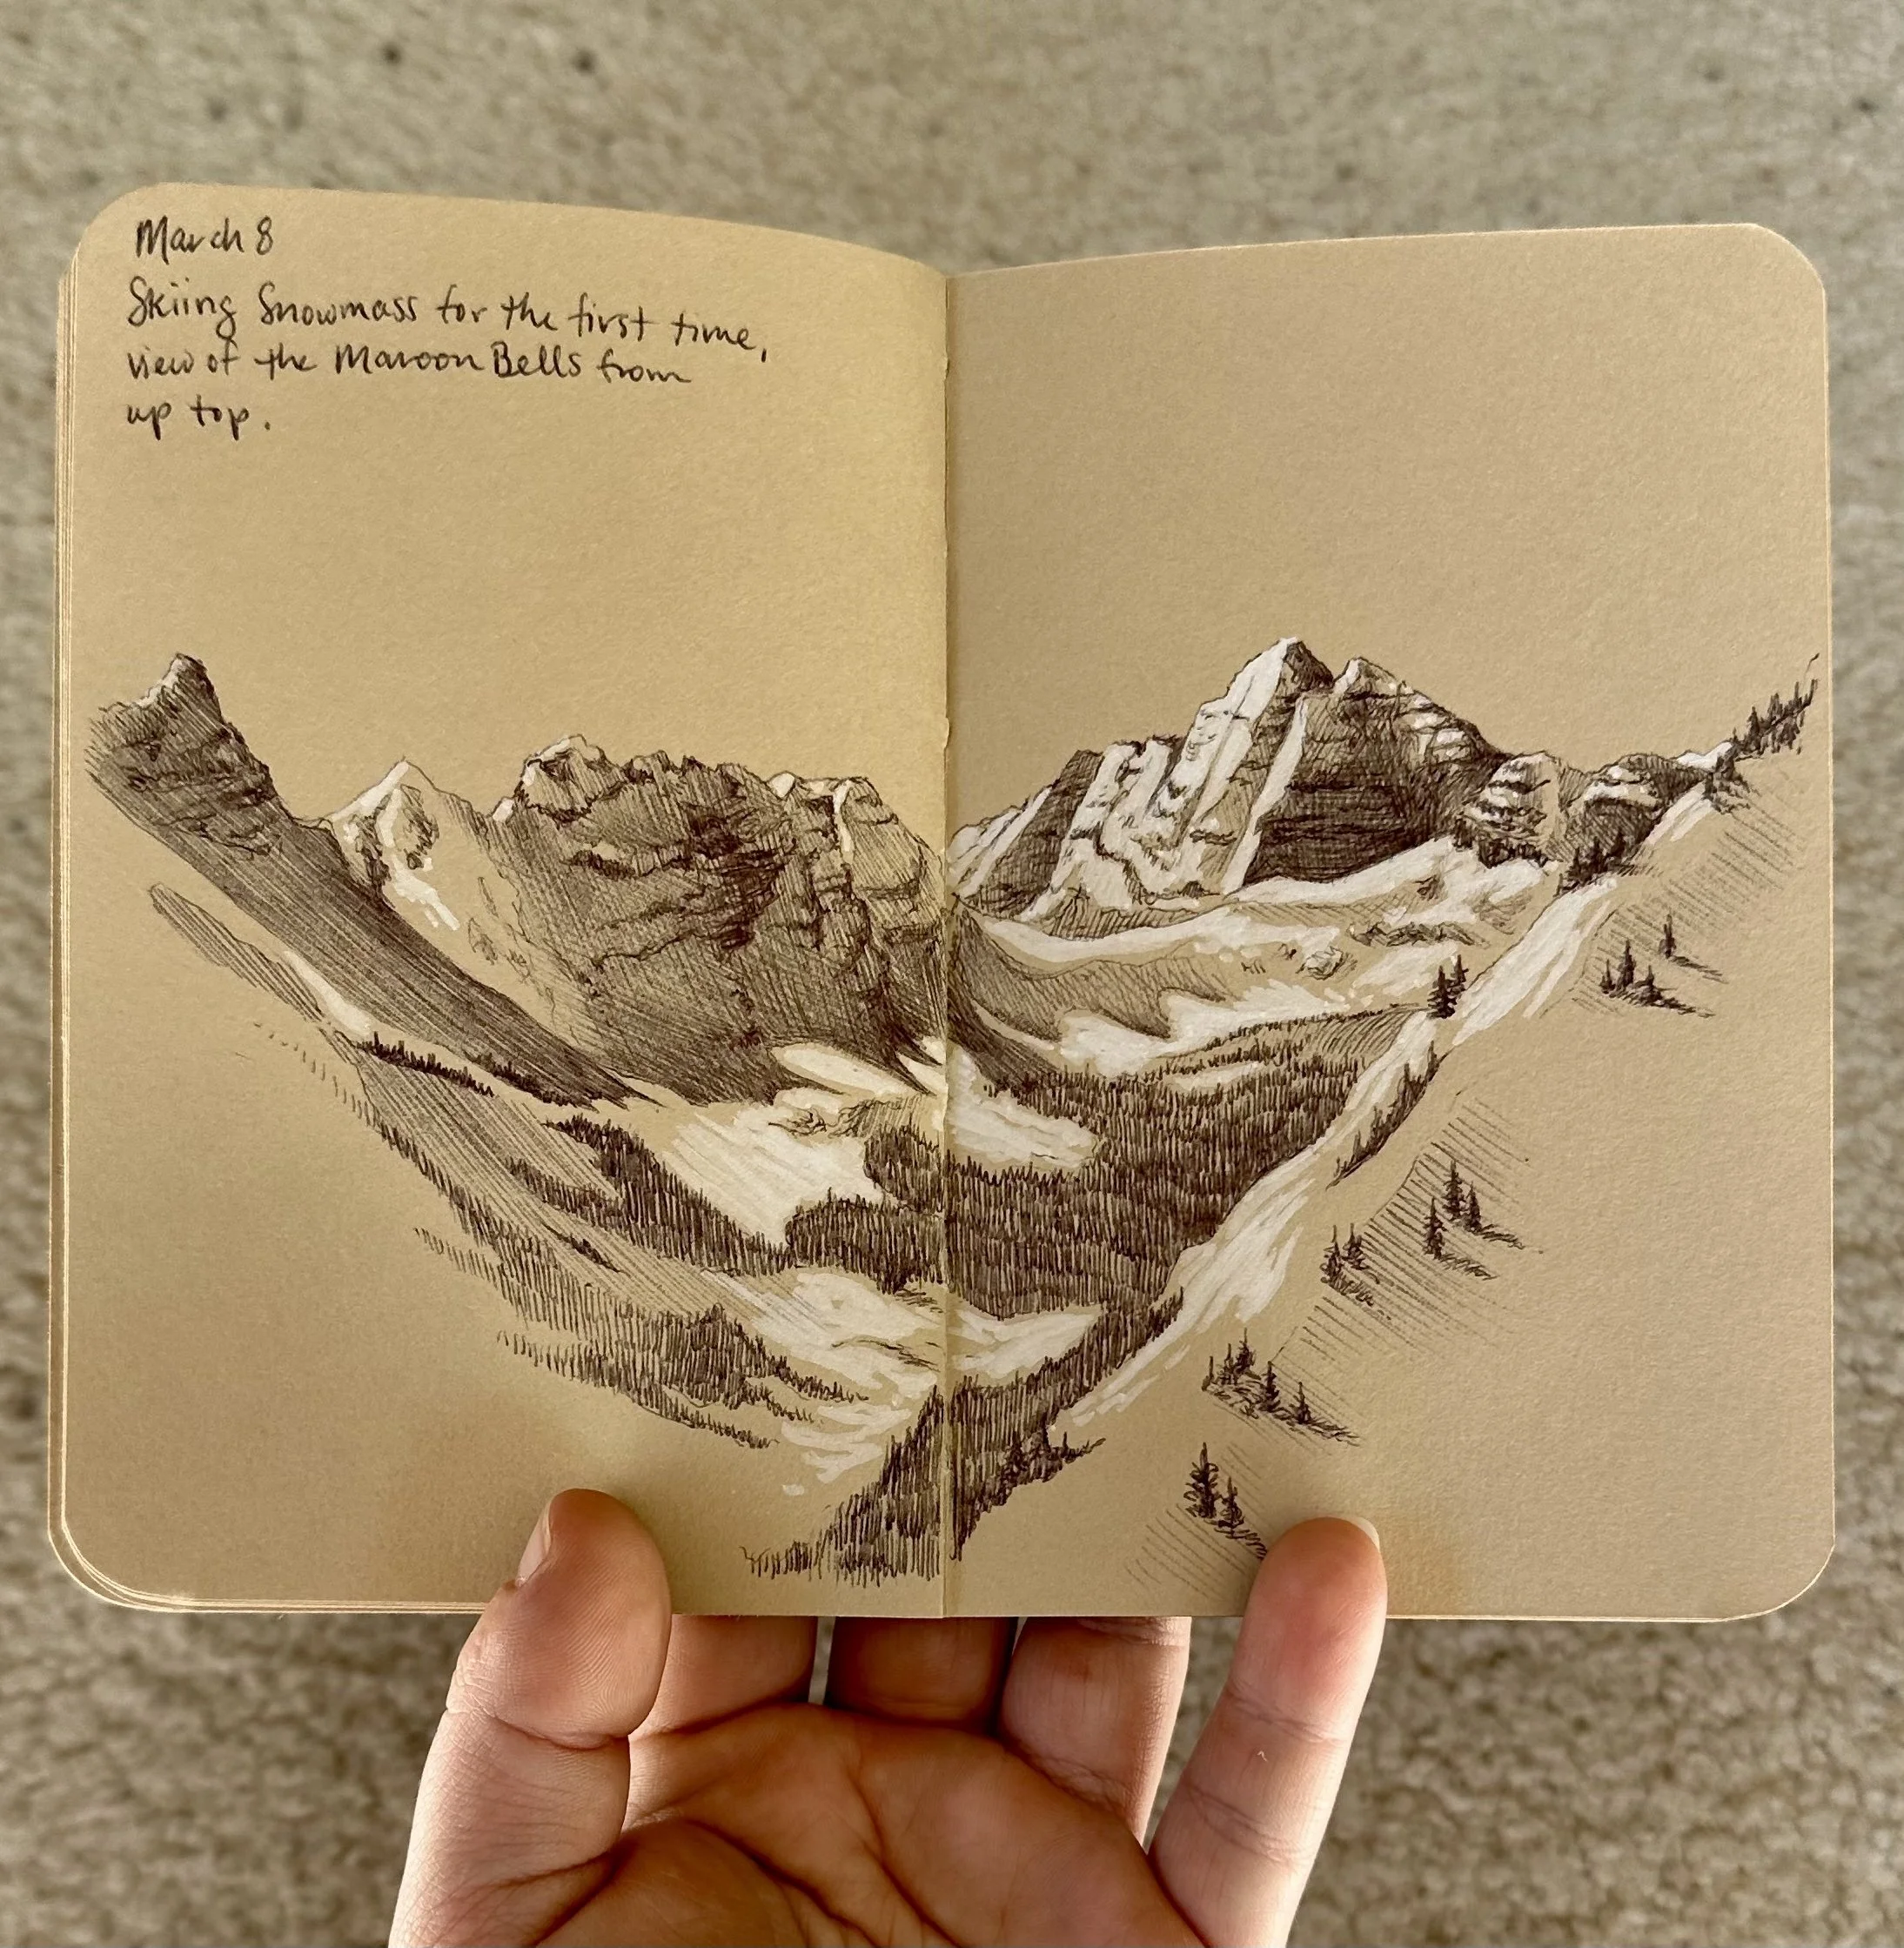 March 8
Skiing Snowmass for the first time,
view of the Maroon Bells from
up top.